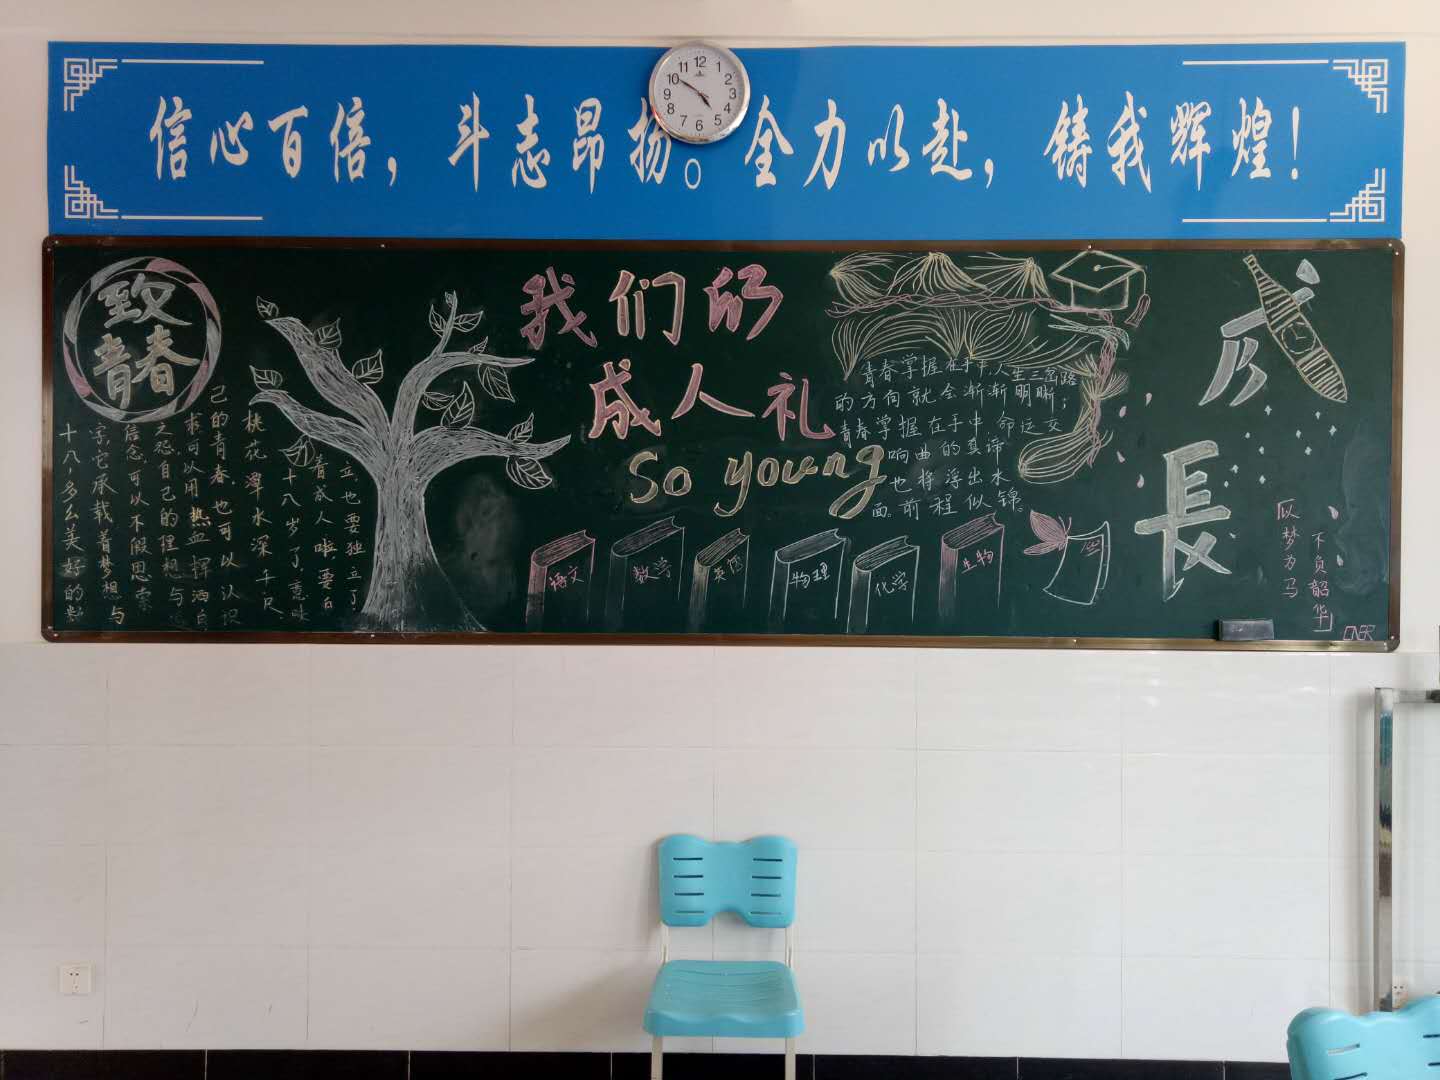 信心百倍，斗志昂扬。全力以赴，铸我辉煌！
12
1
2
3
4
5
6
7
8
9
10
11
致
青春
十八,多么美好的数
字,它承载着梦想与
信念,可以不假思索
之恐自己的理想与追
求可以用热血挥洒自
己的青春,也可以认识
桃花潭水深千尺.
十八岁了,意味
着成人啦,要自
立,也要独立了
我们的
成人礼
So young
青春掌握在手中,人生三岔路
的方向就会渐渐明晰;
青春掌握在手中,命运交
响曲的真谛
也将浮出水
面。前程似锦。
语文
数学
英语
物理
化学
生物
成
長
以梦为马
不负韶华